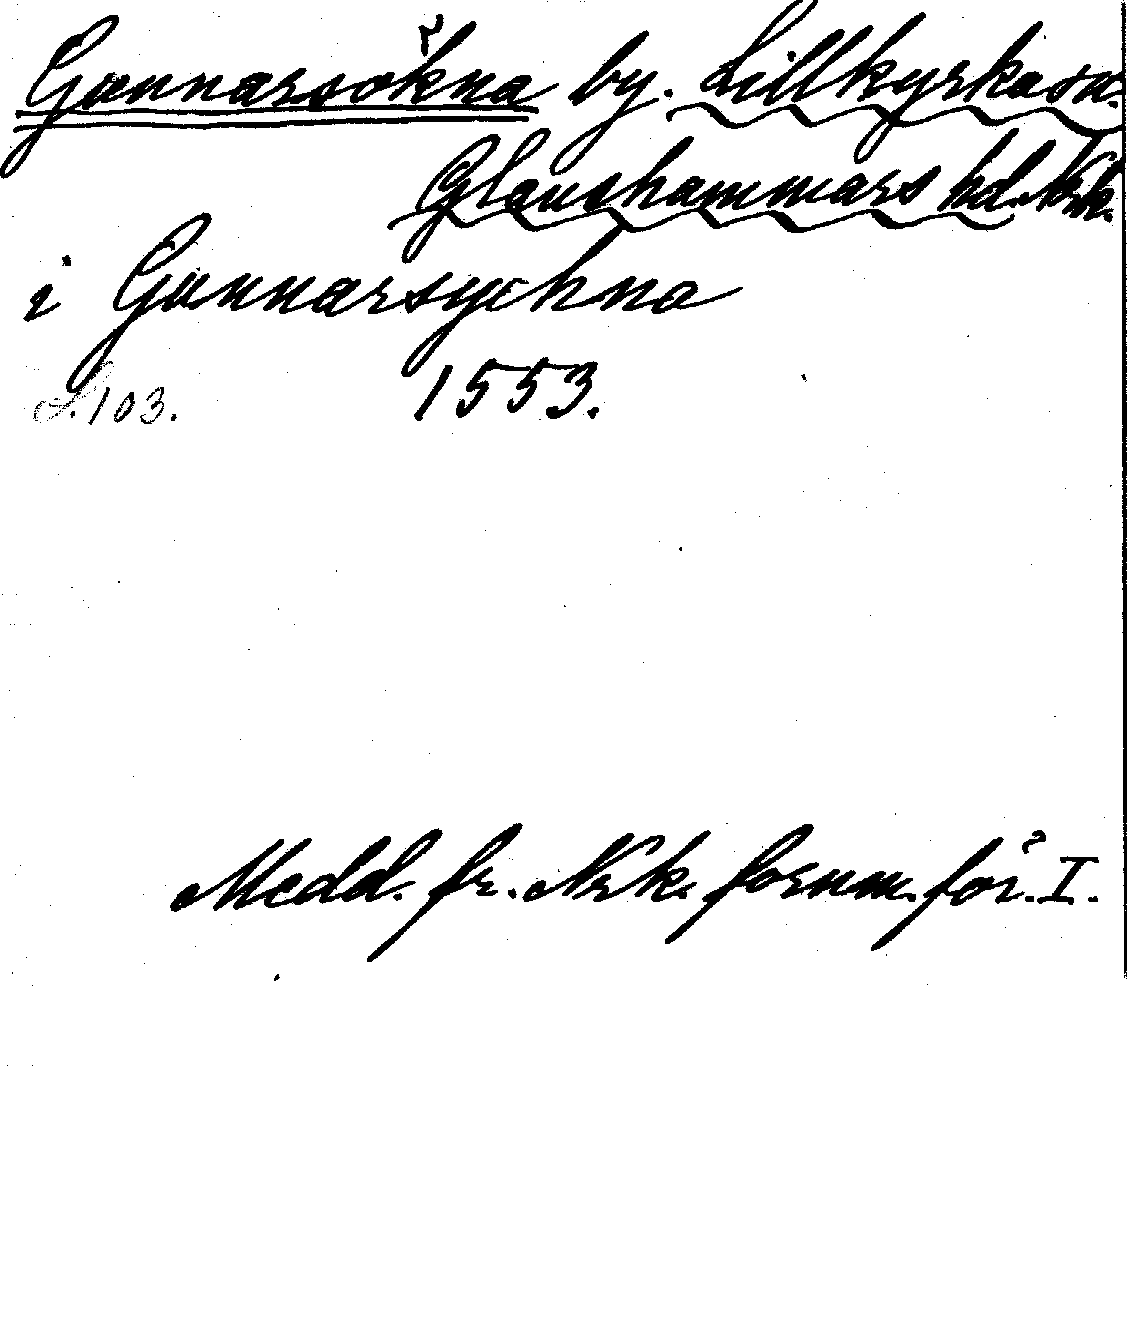 Gunnarsökna by. Lillkyrka sn.
Glanshammars hd. Nrk.
i Gunnarsychna
S. 103. 1553.
Medd. fr. Nrk. fornm. för. I.